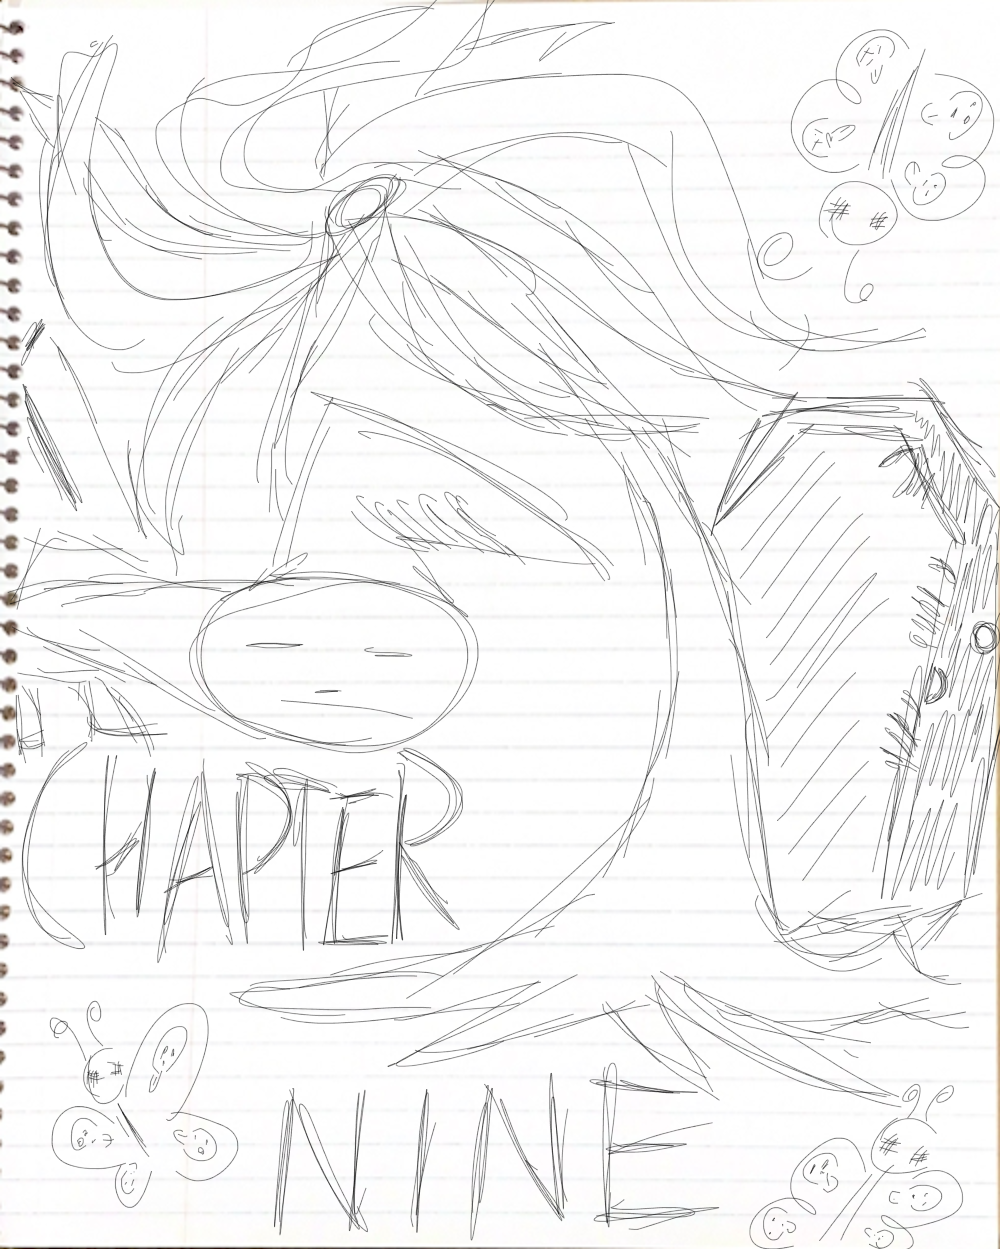 CHAPTER
NINE